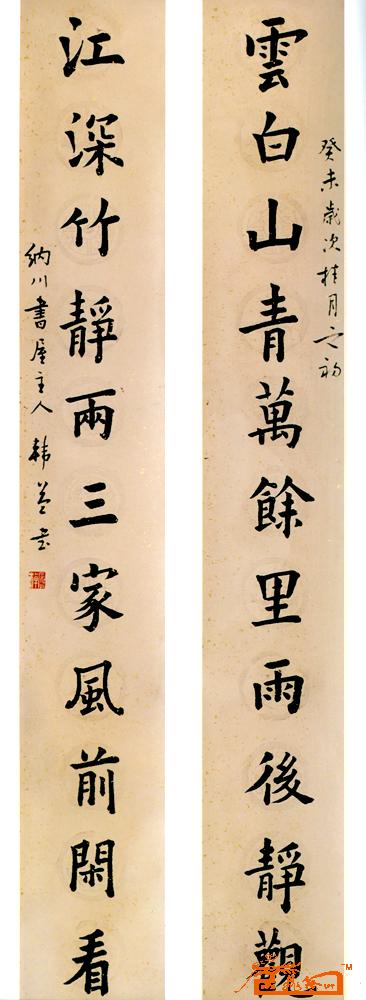 癸未歲次桂月之初
雲白山青萬餘里雨後靜觀
江深竹靜兩三家風前閑看
納川書屋主人韩
TM